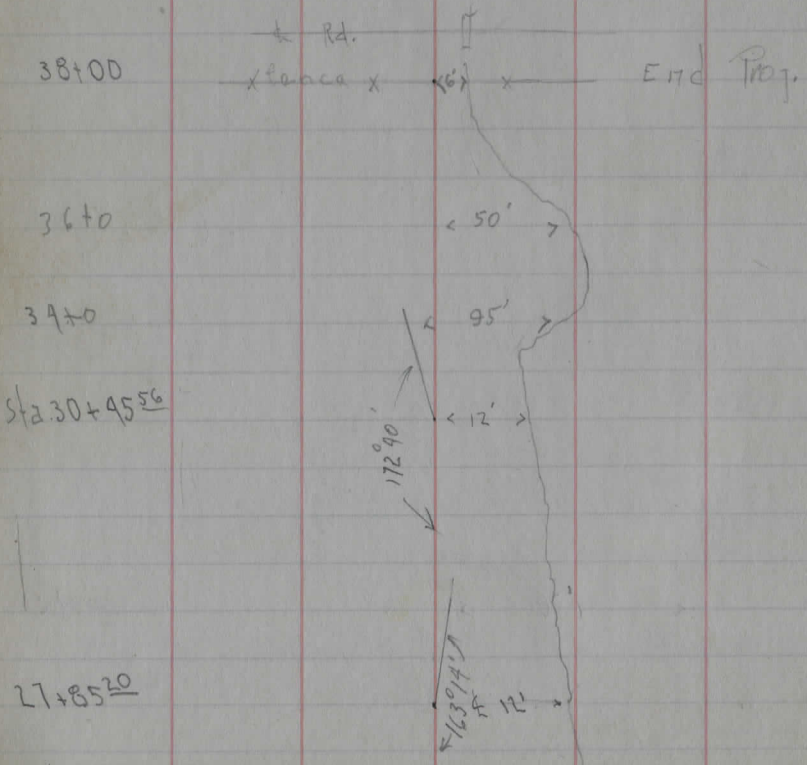 ℄ Rd.
38+00 x fence x 6' x End Proj.
36+0 50'
34+0 95'
Sta. 30+45 56 12'
172°40'
27+85 20 ℄ 12'
163°14'